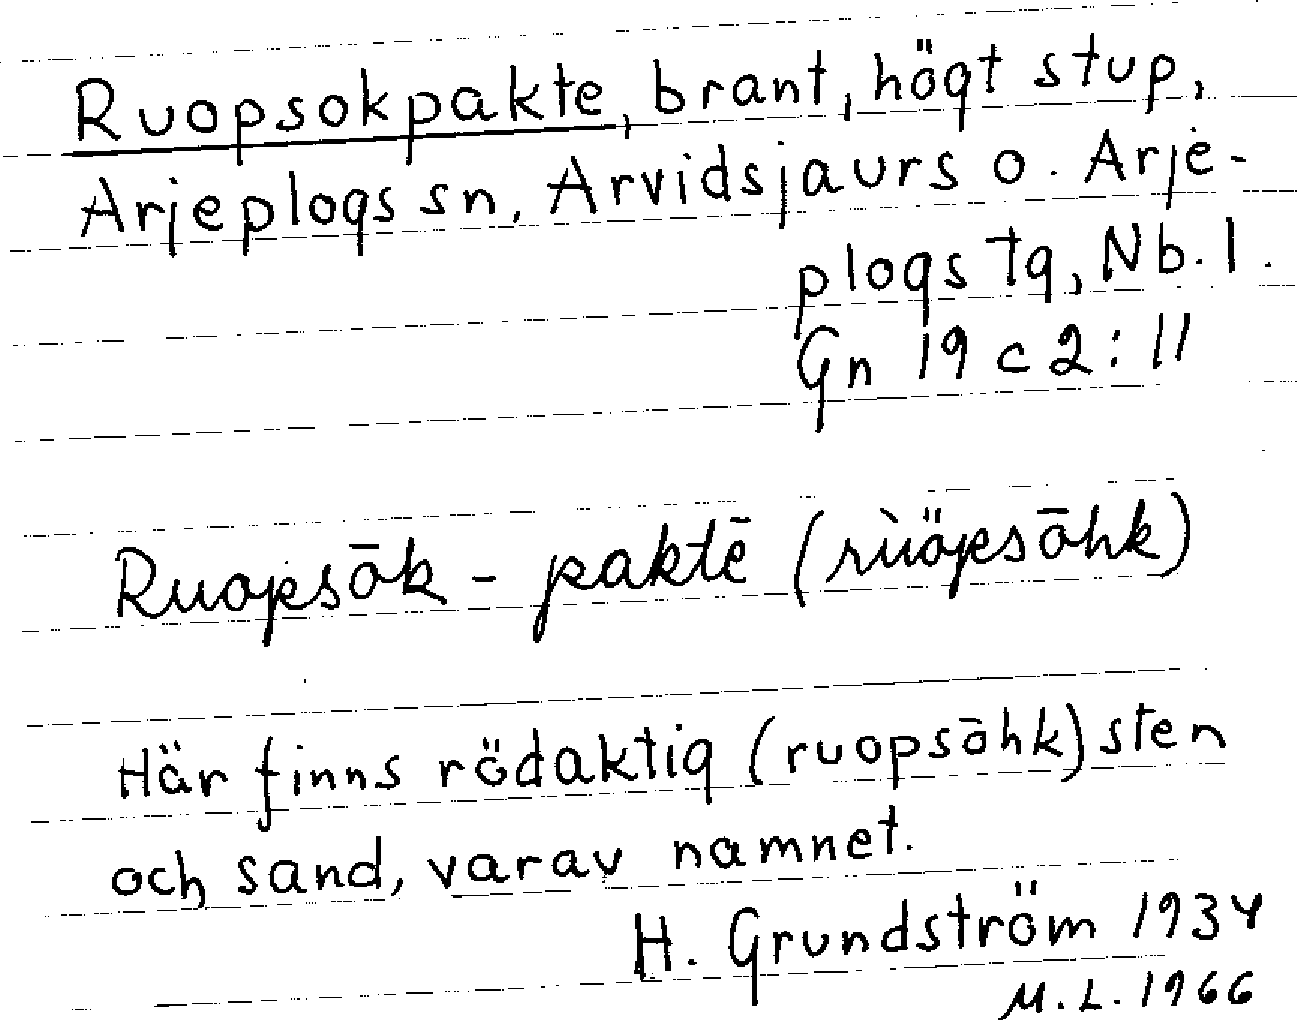 Ruopsokpakte, brant, högt stup,
Arjeplogs sn, Arvidsjaurs o. Arje-
plogs tg, Nb. l.
Gn 19 c 2:11
Ruopsōk - paktē (rùöpsōhk)
Här finns rödaktig (ruopsōhk) sten
och sand, varav namnet.
H. Grundström 1934
M.L. 1966